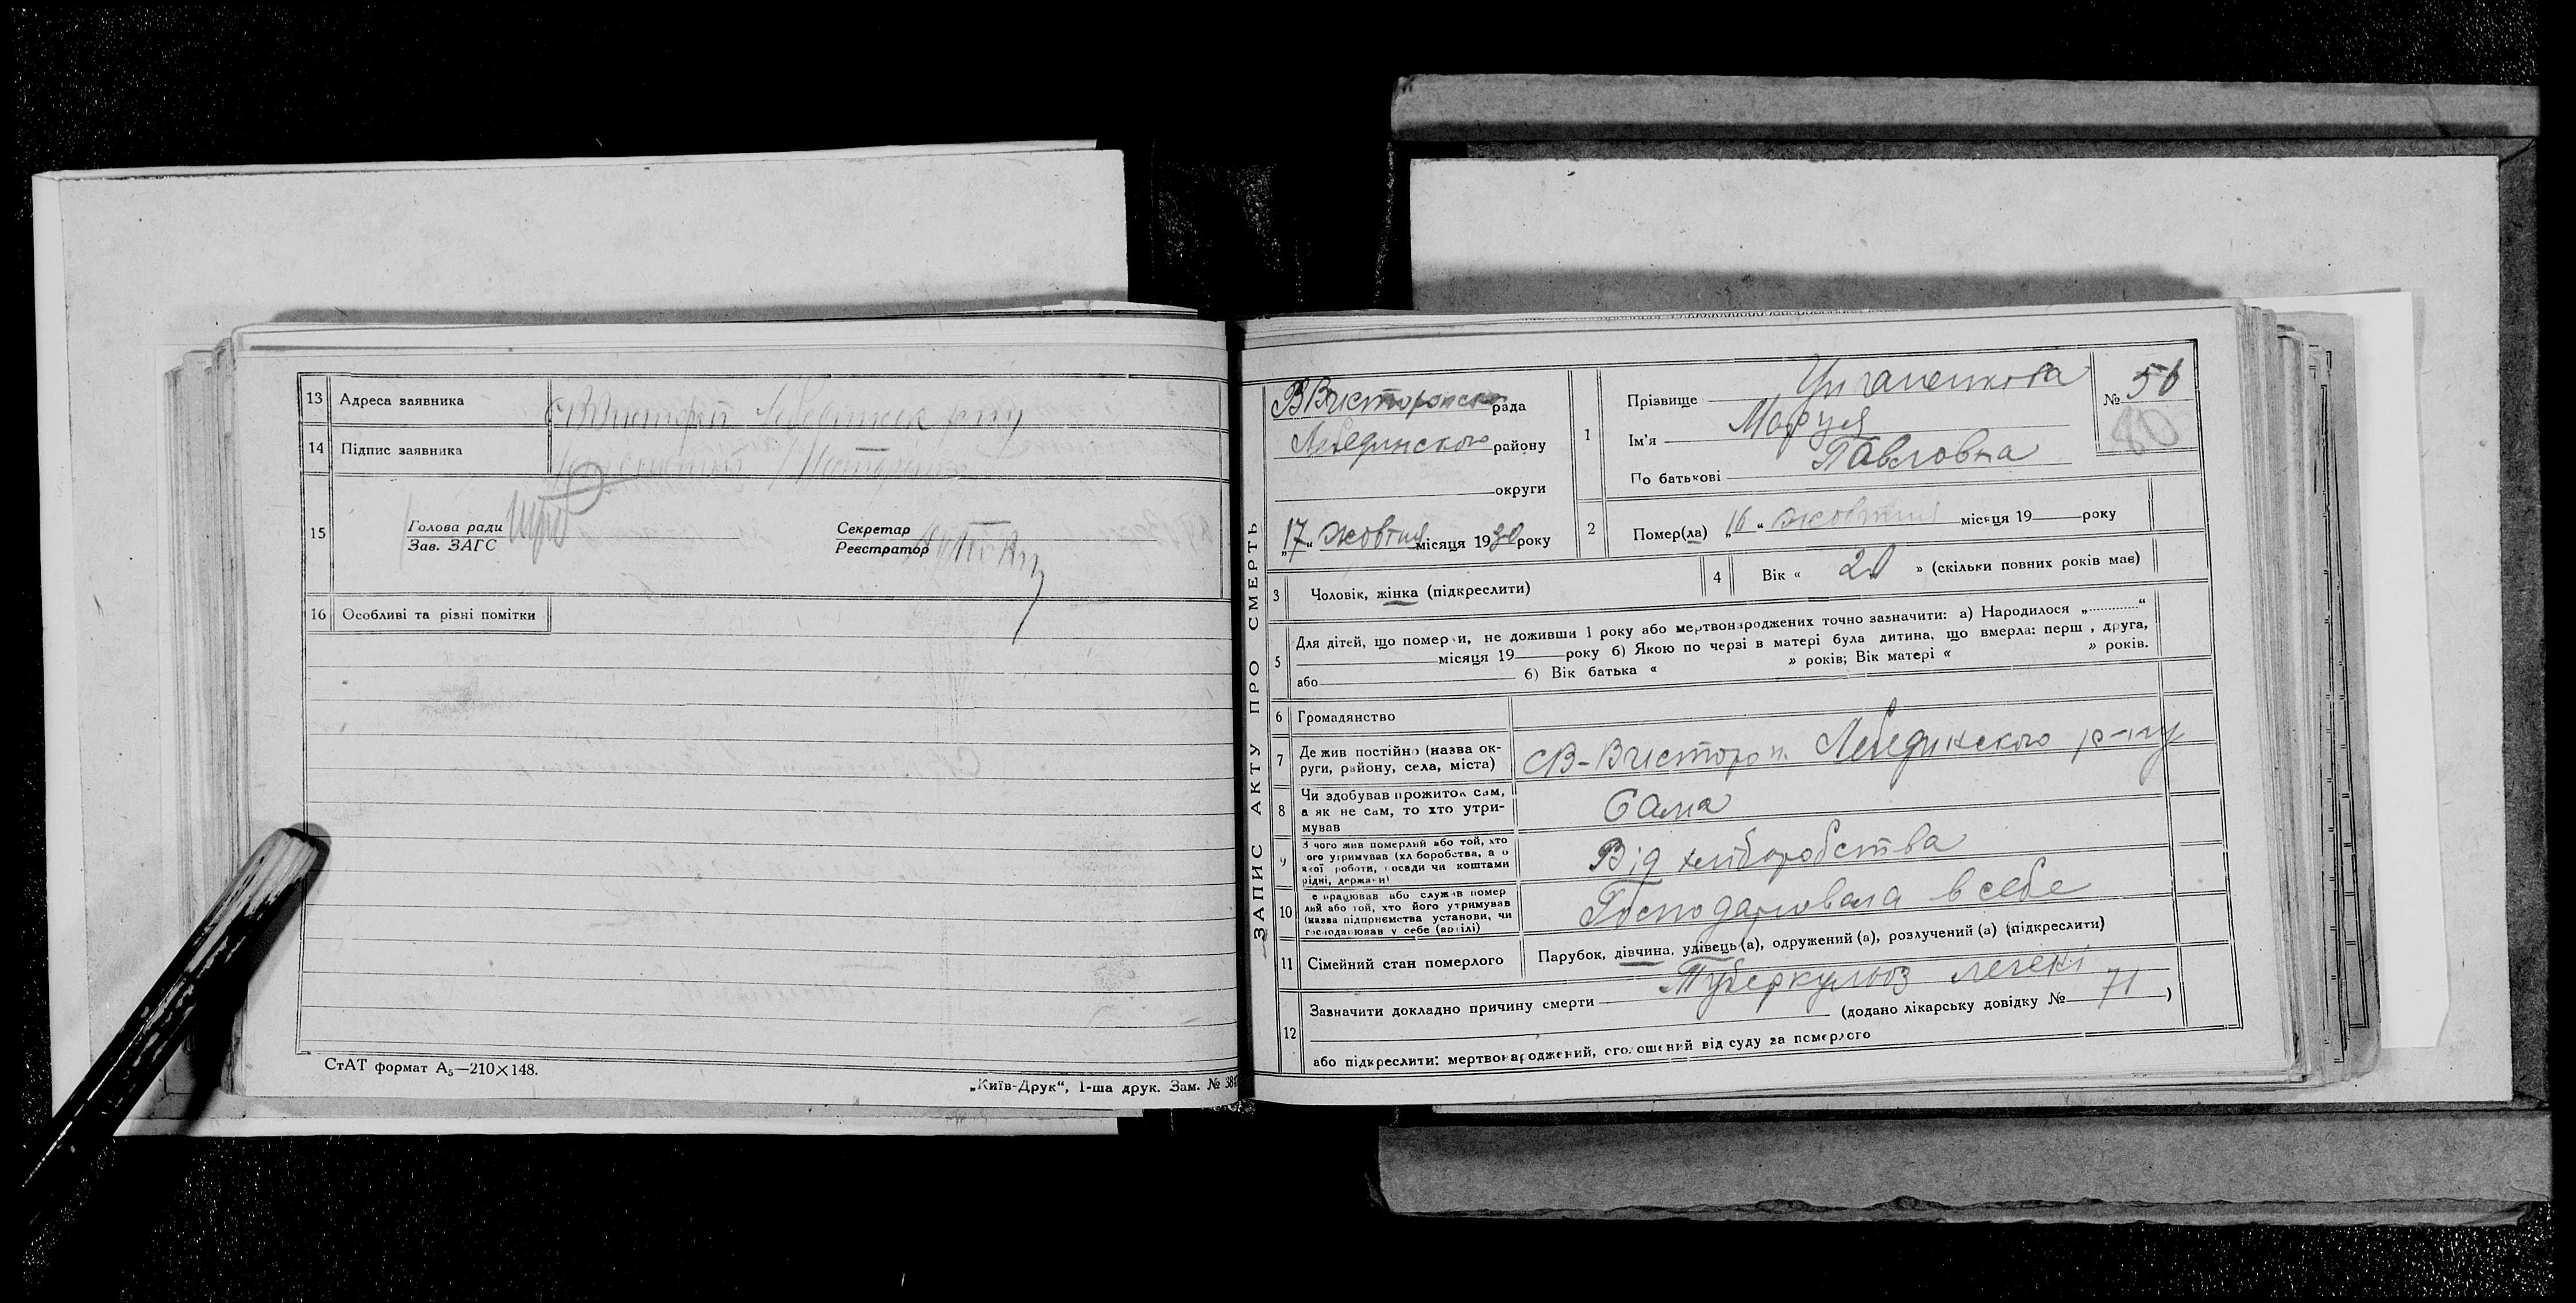 13 Адреса заявника
14 Підпис заявника
15 Голова ради
Зав. ЗАГС
Секретар
Реєстратор
16 Особливі та різні помітки
СтАТ формат А₅—210×148.
„Київ-Друк“, 1-ша друк. Зам. №
ЗАПИС АКТУ ПРО СМЕРТЬ
рада
Лебединского району
округи
„17“ жовтня місяця 1930 року
1 Прізвище Циганенкова
Ім'я Маруся
По батькові Павловна
№ 56
80
2 Помер(ла) „16“ жовтня місяця 19 року
3 Чоловік, жінка (підкреслити)
4 Вік « » (скільки повних років має)
5 Для дітей, що померли, не доживши 1 року або мертвонароджених точно зазначити: а) Народилося „............“
місяця 19 року б) Якою по черзі в матері була дитина, що вмерла: перш , друга,
або б) Вік батька « » років; Вік матері « » років.
6 Громадянство
7 Де жив постійно (назва ок-
руги, району, села, міста) Лебединского р-ну
8 Чи здобував прожиток сам,
а як не сам, то хто утри-
мував Сама
9 З чого жив померлий або той, хто
ого утримував (хл боробства, а о
якої роботи, посади чи коштами
рідні, держави) Від хліборобства
10 е працював або служив помер
лий або той, хто його утримував
(назва підприємства установи, чи
господарював у себе (артілі) Господарювала в себе
11 Сімейний стан померлого Парубок, дівчина, удівець (а), одружений (а), розлучений (а) (підкреслити)
12 Зазначити докладно причину смерти Туберкульоз легені
(додано лікарську довідку № 71 )
або підкреслити: мертвонароджений, оголошений від суду за померлого